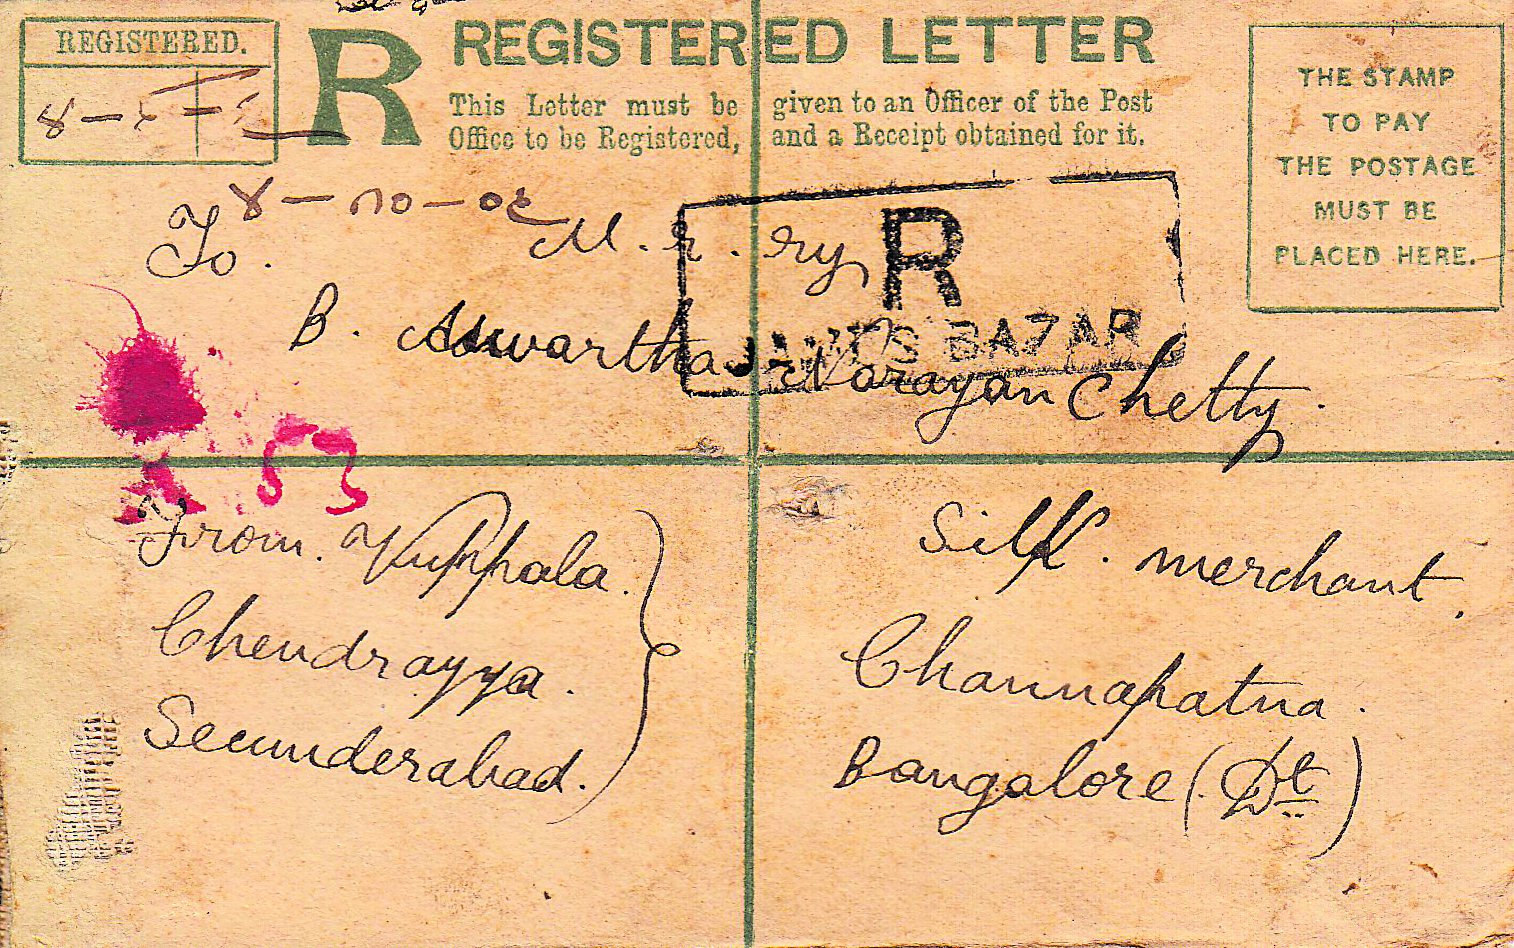 REGISTERED.
R
REGISTERED LETTER
This Letter must be given to an Officer of the Post
Office to be Registered, and a Receipt obtained for it.
THE STAMP
TO PAY
THE POSTAGE
MUST BE
PLACED HERE.
To. M. r. ry
R
BAZAR
B. Aswartha Narayan Chetty.
Silk. merchant,
Channapatna.
Bangalore (Dt)
From. Vuppala.
Chendrayya.
Secunderabad.